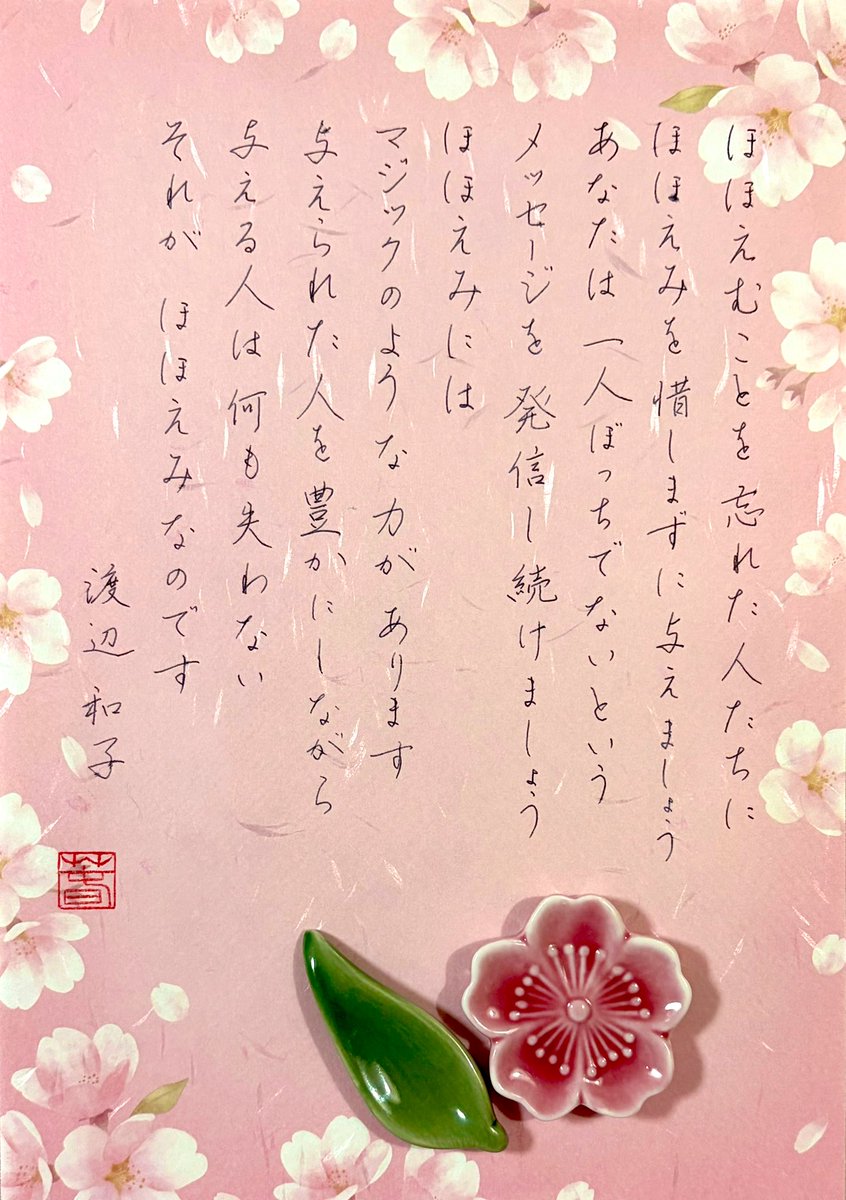 ほほえむことを忘れた人たちに
ほほえみを惜しまずに与えましょう
あなたは一人ぼっちでないという
メッセージを発信し続けましょう
ほほえみには
マジックのような力があります
与えられた人を豊かにしながら
与える人は何も失わない
それが ほほえみなのです
渡辺 和子